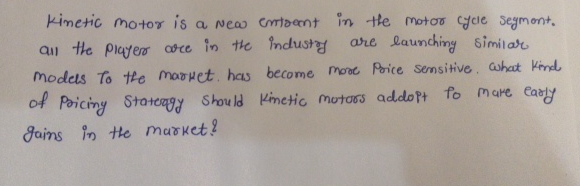 Kinetic motor is a New entrent in the motor cycle segment.
all the Players are in the industry are launching similar
models To the market. has become more Price sensitive. what Kind
of Pricing Strategy should Kinetic motors addopt To make early
gains in the market?